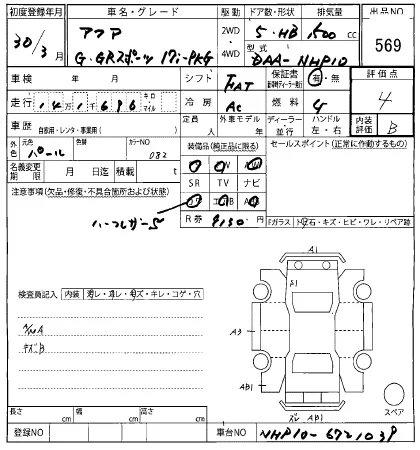 初度登録年月 車名・グレード 駆動 ドア数・形状 排気量 出品NO
30年 3月 アクア 2WD 5・HB 1500cc 569
G・GRスポーツ 17i-PKG 4WD 型式 DAA-NHP10
車検 年 月 シフト FAT 保証書 有・無 評価点
走行 14万1千696 キロ・マイル 冷房 AC 燃料 4
車歴 自家用・レンタ・事業用( ) 定員 人 外車モデル 年 ディーラー・並行 ハンドル 左・右 内装評価 B
外色 元色 パール 色替 カラーNO 082 装備品(純正品に限る) セールスポイント(正常に作動するもの)
名義変更期限 月 日迄 積載 t SR TV ナビ
注意事項(欠品・修復・不具合箇所および状態)
ハーフレザーS R券 9130円 Fガラス 石・キズ・ヒビ・ワレ・リペア跡
A1
検査員記入 内装 ・コゲ・穴
キズB A3 A1
AB1
長さ cm 幅 cm 高さ cm AB1 スペア
登録NO 車台NO NHP10-6721039